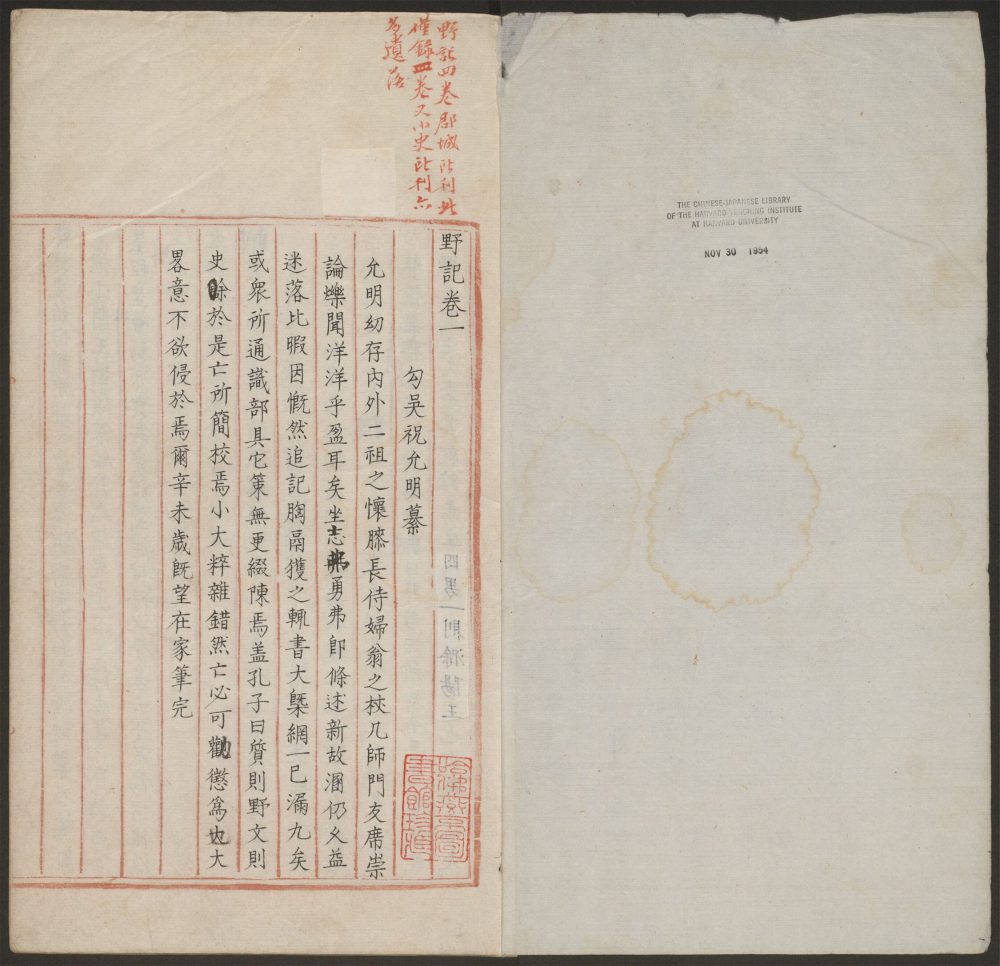 野記四卷郡城所刊此
僅錄一卷又小史所刊六
多遺落
野記卷一
勾吳祝允明纂
允明幼存內外二祖之懷膝長侍婦翁之杖几師門友席崇
論爍聞洋洋乎盈耳矣坐志弗勇弗卽條述新故溷仍久益
迷落比暇因慨然追記胸鬲獲之輒書大槩網一已漏九矣
或衆所通識部具它策無更綴陳焉盖孔子曰質則野文則
史餘於是亡所簡校焉小大粹雜錯然亡必可勸懲爲也大
畧意不欲侵於焉爾辛未歲旣望在家筆完
哈佛燕京圖
書館珍藏
THE CHINESE-JAPANESE LIBRARY
OF THE HARVARD-YENCHING INSTITUTE
AT HARVARD UNIVERSITY
NOV 30 1954